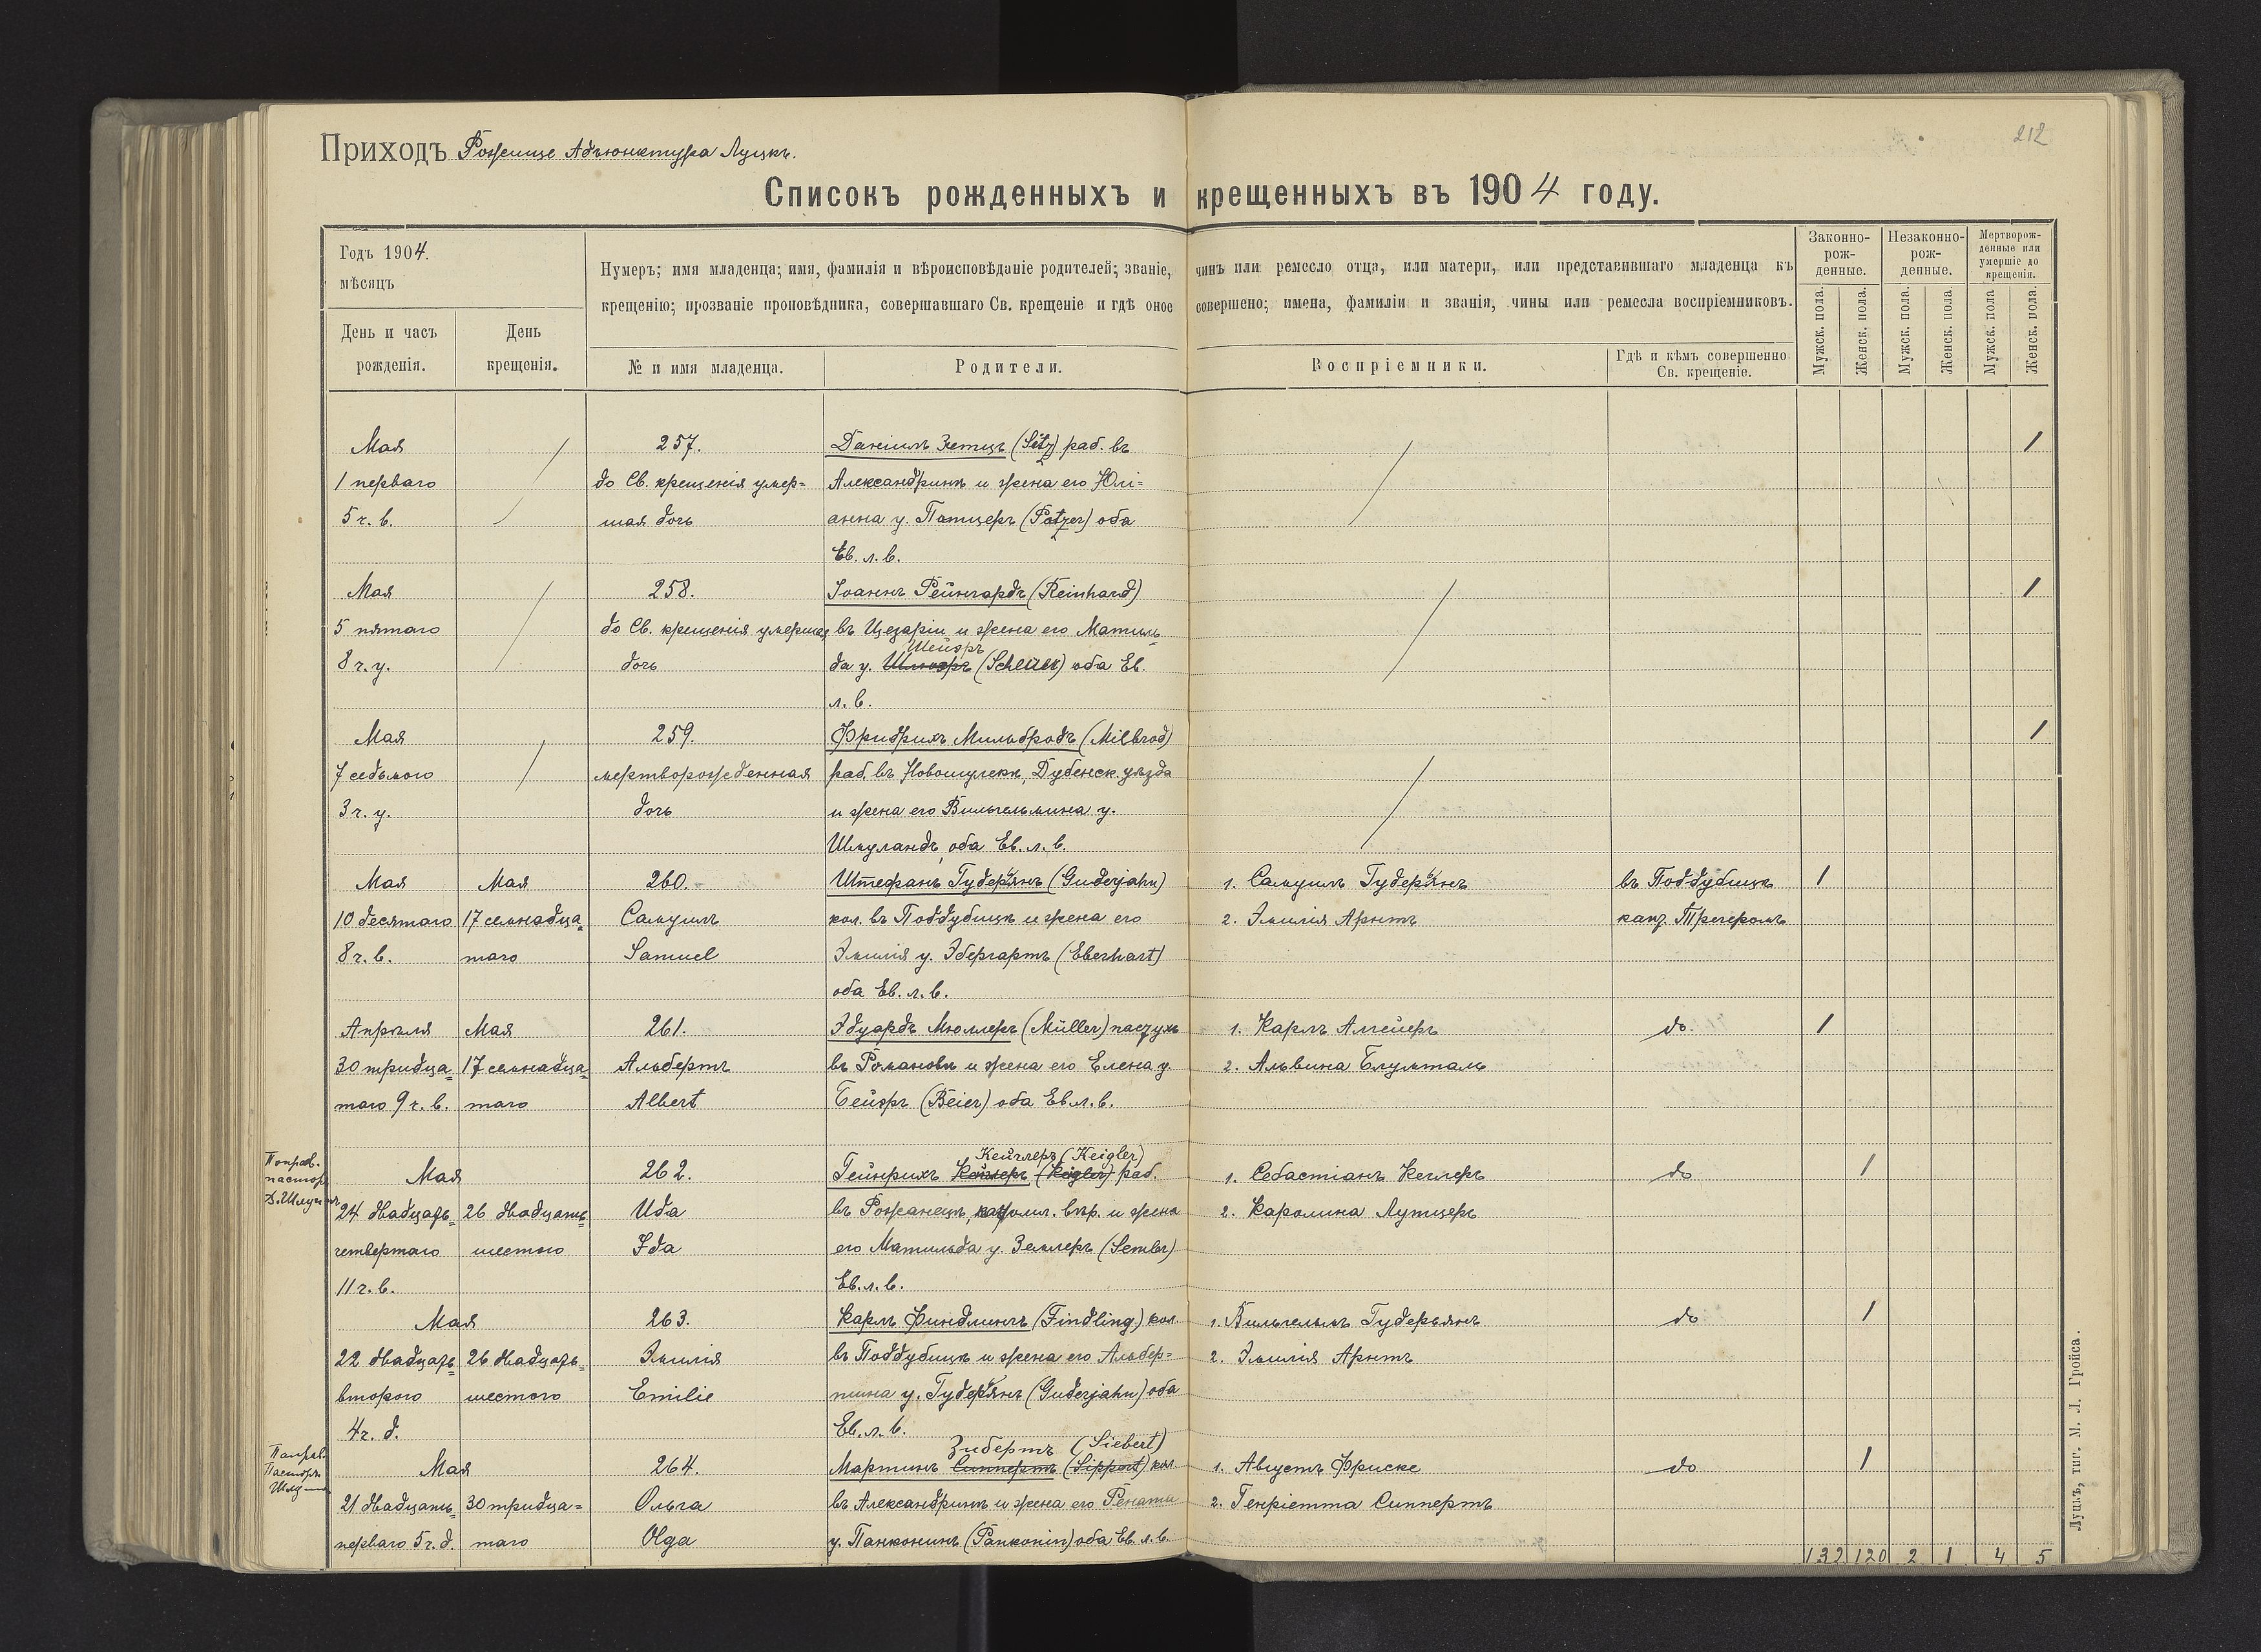 212
Приходъ Рожище Адъюнктура Луцкъ.
Списокъ рожденныхъ и крещенныхъ въ 1904 году.
Годъ 1904.
мѣсяцъ
День и часъ рожденія.
День крещенія.
Нумеръ; имя младенца; имя, фамилія и вѣроисповѣданіе родителей; званіе, чинъ или ремесло отца, или матери, или представившаго младенца къ
крещенію; прозваніе проповѣдника, совершавшаго Св. крещеніе и гдѣ оное совершено; имена, фамиліи и званія, чины или ремесла воспріемниковъ.
№ и имя младенца.
Родители.
Воспріемники.
Гдѣ и кѣмъ совершенно Св. крещеніе.
Законно-рож-денные.
Незаконно-рож-денные.
Мертворож-денные или умершіе до крещенія.
Мужск. пола. Женск. пола. Мужск. пола. Женск. пола. Мужск. пола Женск. пола.
Мая 257. Даніилъ Зетцъ (Setz) раб. въ 1
1 перваго до Св. крещенія умер= Александринѣ и жена его Юлі=
5 ч. в. шая дочь анна у. Патцеръ (Patzer) оба
Ев. л. в.
Мая 258. Іоаннъ Рейнгардъ (Reinhard) 1
5 пятаго до Св. крещенія умершая въ Цезаріи и жена его Матиль=
Шейэръ
8 ч. у. дочь да у. (Scheuer) оба Ев.
л. в.
Мая 259. Фридрихъ Мильбродъ (Milbrod) 1
7 седьмого мертворожденная раб. въ Дубенск. уѣзда
3 ч. у. дочь и жена его Вильгельмина у.
Шмуландъ, оба Ев. л. в.
Мая Мая 260. Штефанъ Гудерянъ (Guderjahn) 1. Самуилъ Гудерянъ въ Поддубицѣ 1
10 десятаго 17 семнадца= Самуилъ кол. въ Поддубицѣ и жена его 2. Эмилія Арнтъ канг. Трегеромъ
8 ч. в. таго Samuel Эмилія у. Эбергартъ (Eberhart)
оба Ев. л. в.
Апрѣля Мая 261. Эдуардъ Мюллеръ (Müller) пастухъ 1. Карлъ do 1
30 тридца= 17 семнадца= Альбертъ въ Романовѣ и жена его Елена у. 2. Альвина Блументаль
таго 9 ч. в. таго Albert Бейэръ (Beier) оба Ев. л. в.
Кейглеръ (Keigler)
Поправ. пасторъ Мая 262. Гейнрихъ Кейглеръ (Keigler) раб. 1. Себастіанъ Кеглеръ do 1
24 двадцать= 26 двадцать= Ида въ Рожанецъ, католич. вѣр. и жена 2. Каролина Лутцеръ
четвертаго шестого Ida его Матильда у. Землеръ (Semler)
11 ч. в. Ев. л. в.
Мая 263. Карлъ Финдлингъ (Findling) кол. 1. Вильгельмъ Гудерьянъ do 1
22 двадцать= 26 двадцать= Эмилія въ Поддубицѣ и жена его Альбер= 2. Эмилія Арнтъ
второго шестого Emilie тина у. Гудерянъ (Guderjahn) оба
4 ч. д. Ев. л. в.
Зибертъ (Siebert)
Поправ. Пасторъ Мая 264. Мартинъ Сиппертъ (Sippert) кол. 1. Августъ Фриске do 1
21 двадцать= 30 тридца= Ольга въ Александринѣ и жена его Рената 2. Генріетта Сиппертъ
перваго 5 ч. д. таго Olga у. Панконинъ (Pankonin) оба Ев. л. в.
132 120 2 1 4 5
Луцкъ, тип. М. Л. Гройса.